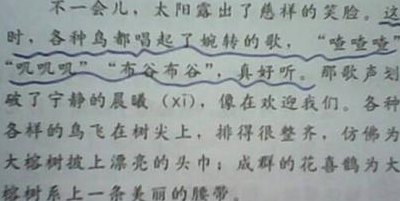 不一会儿，太阳露出了慈祥的笑脸。这
时，各种鸟都唱起了婉转的歌，“喳喳喳”
“叽叽叽”“布谷布谷”，真好听。那歌声划
破了宁静的晨曦（xī），像在欢迎我们。各种
各样的鸟飞在树尖上，排得很整齐，仿佛为
大榕树披上漂亮的头巾；成群的花喜鹊为大
榕树系上一条美丽的腰带。